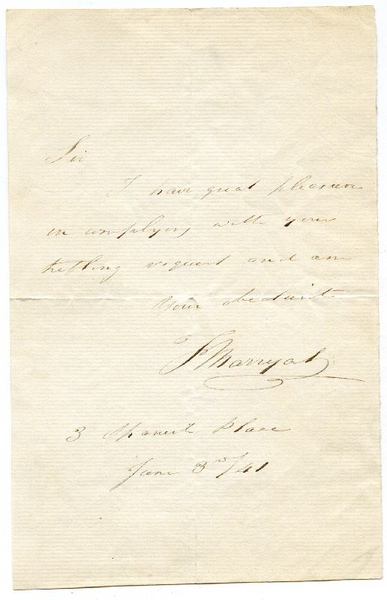 Sir
I have great pleasure
in complying with your
trifling request and am
Your obedient
F Marryat
3 Spanish Place
June 3rd/41